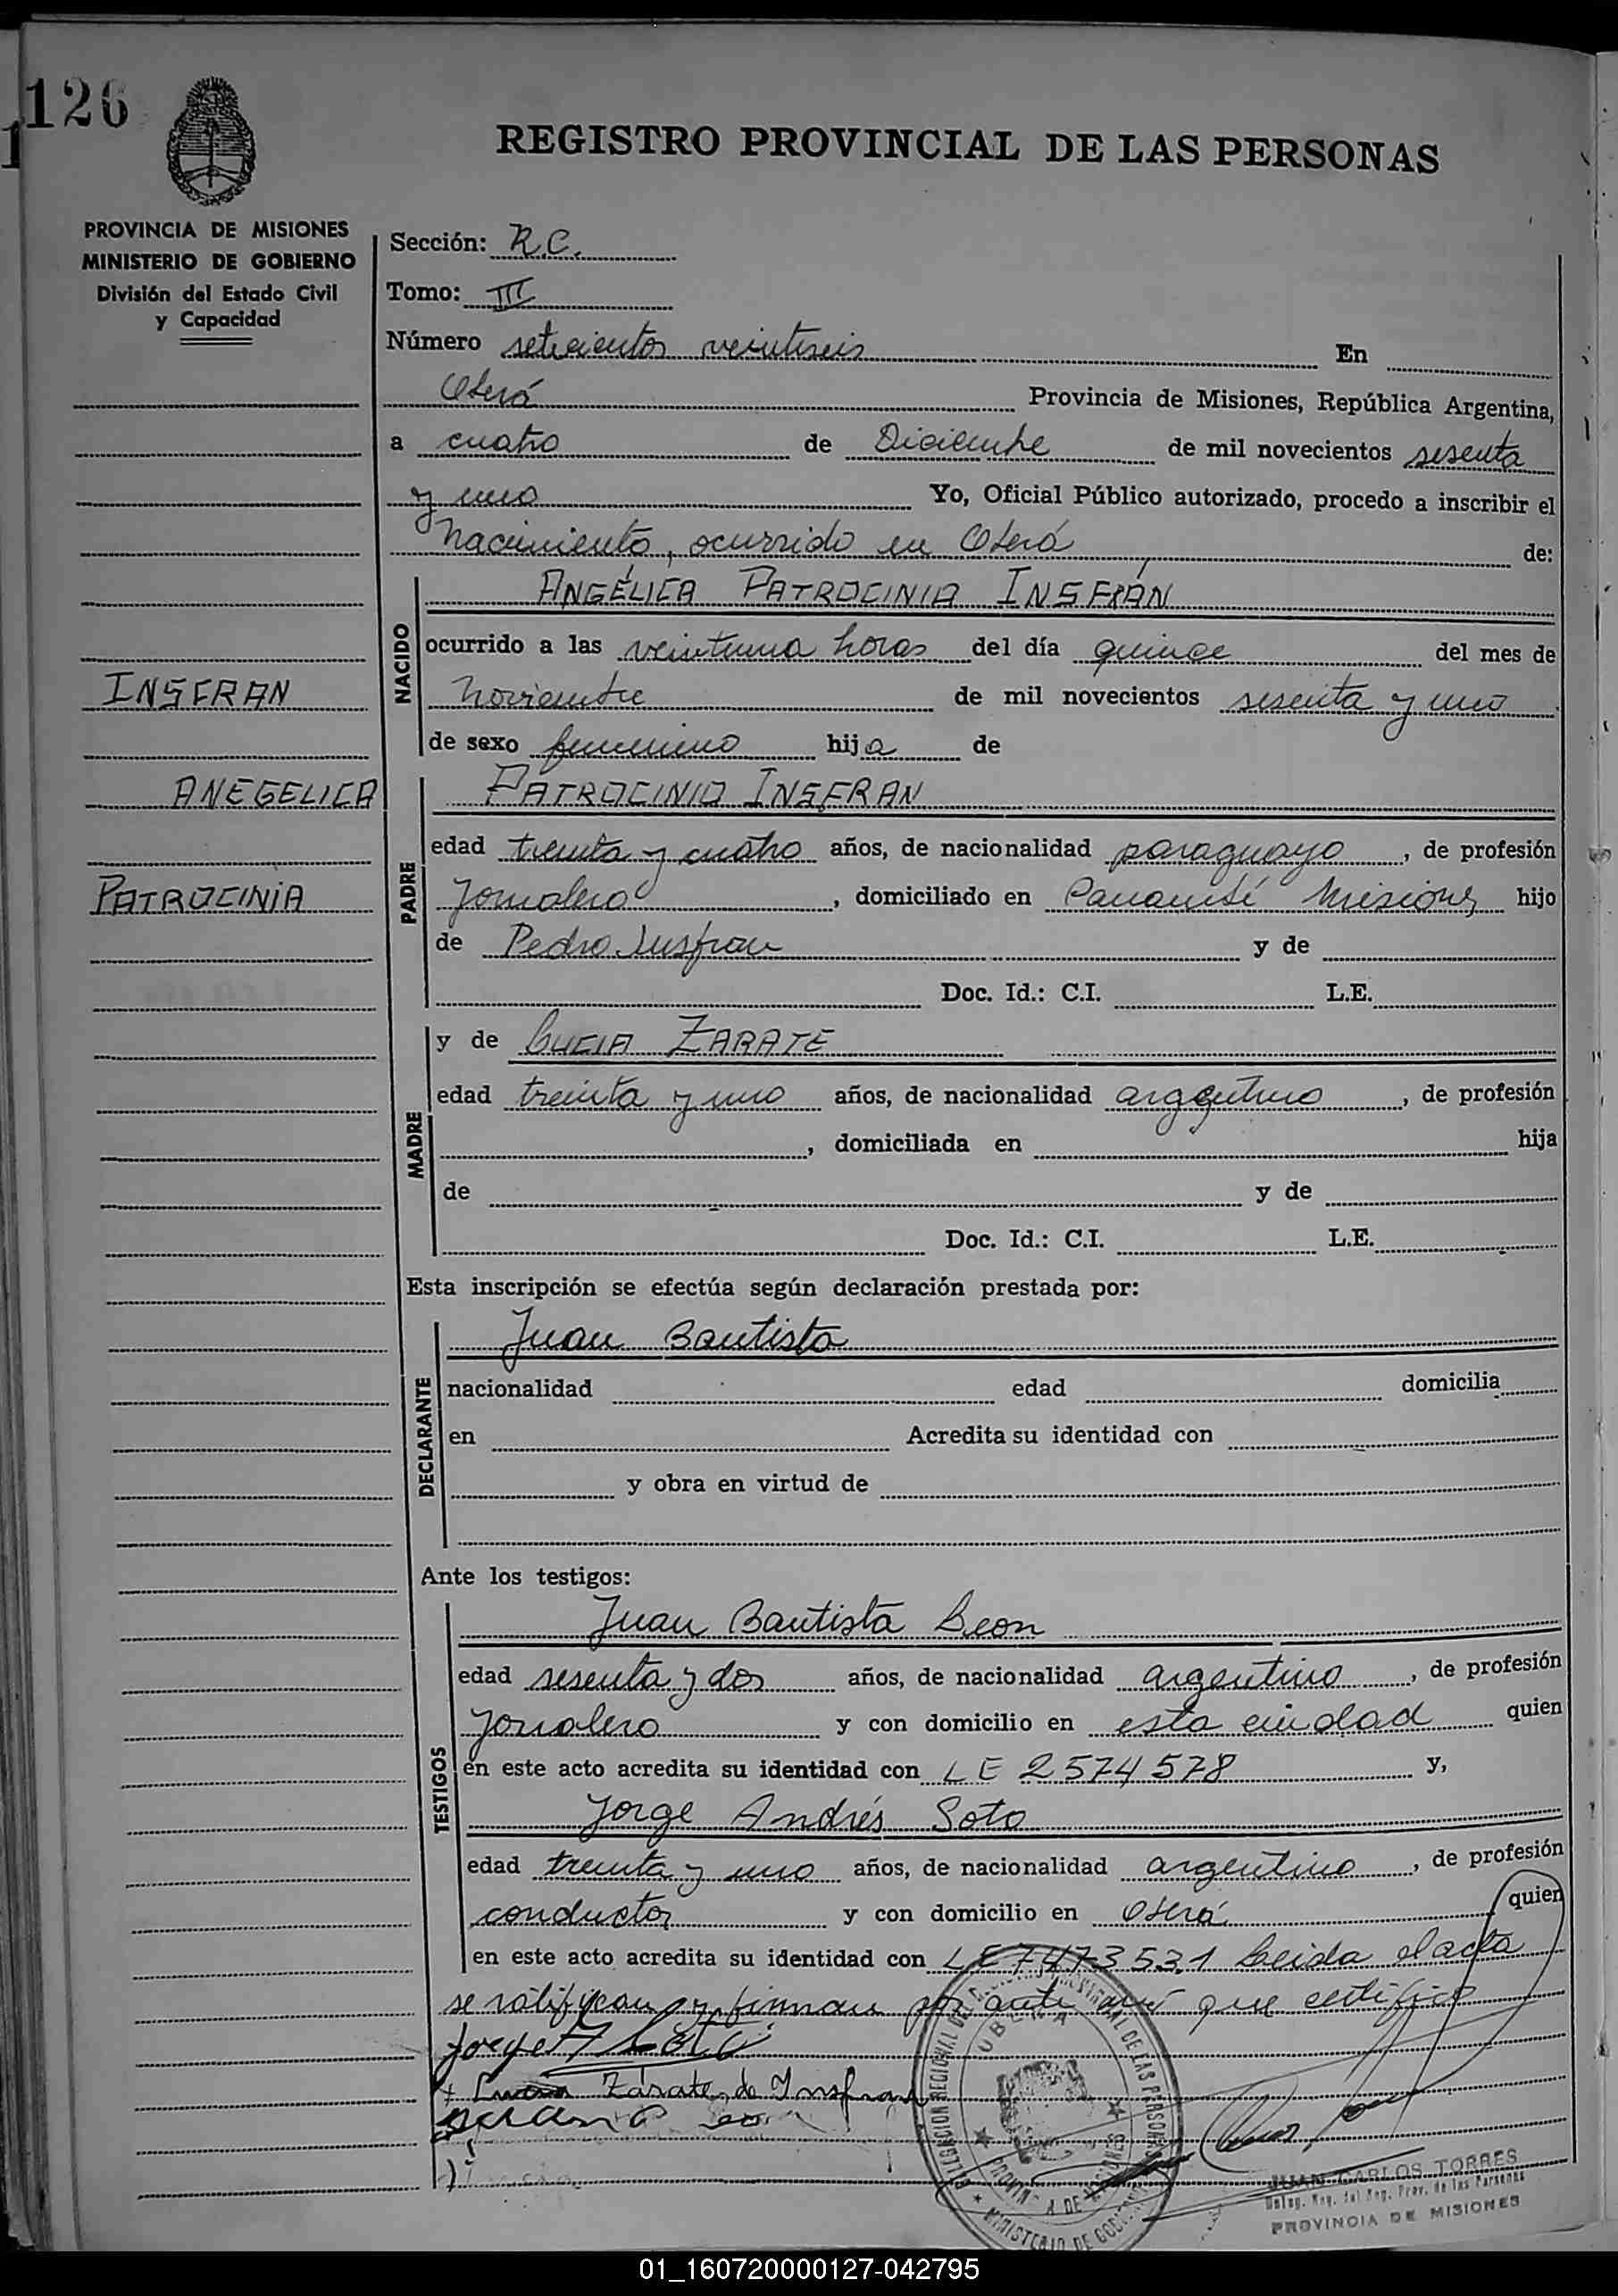 126
REGISTRO PROVINCIAL DE LAS PERSONAS
PROVINCIA DE MISIONES
MINISTERIO DE GOBIERNO
División del Estado Civil
y Capacidad
Sección: R.C.
Tomo: III
Número setecientos veintiseis En
Oberá Provincia de Misiones, República Argentina,
a cuatro de Diciembre de mil novecientos sesenta
y uno Yo, Oficial Público autorizado, procedo a inscribir el
nacimiento, ocurrido en Oberá de:
NACIDO
ANGÉLICA PATROCINIA INSFRÁN
ocurrido a las veintiuna horas del día quince del mes de
Noviembre de mil novecientos sesenta y uno
de sexo femenino hija de
INSFRAN
ANEGELICA
PATROCINIA
PADRE
PATROCINIO INSFRAN
edad treinta y cuatro años, de nacionalidad paraguayo, de profesión
Jornalero, domiciliado en Panambí Misiones hijo
de Pedro Insfran y de
Doc. Id.: C.I. L.E.
MADRE
y de LUCIA ZARATE
edad treinta y uno años, de nacionalidad argentino, de profesión
, domiciliada en hija
de y de
Doc. Id.: C.I. L.E.
Esta inscripción se efectúa según declaración prestada por:
DECLARANTE
Juan Bautista
nacionalidad edad domicilia
en Acredita su identidad con
y obra en virtud de
Ante los testigos:
TESTIGOS
Juan Bautista Leon
edad sesenta y dos años, de nacionalidad argentino, de profesión
Jornalero y con domicilio en esta ciudad quien
en este acto acredita su identidad con LE 2574578 y,
Jorge Andrés Soto
edad treinta y uno años, de nacionalidad argentino, de profesión
conductor y con domicilio en Oberá quien
en este acto acredita su identidad con LE 7473531 Leida el acta
se ratifican y firman por ante mí que certifico
Jorge A Soto
Zárate de Insfran
OBERA
PROVINCIA DE MISIONES
MINISTERIO DE GOBIERNO
JUAN CARLOS TORRES
Deleg. Reg. del Reg. Prov. de las Personas
PROVINCIA DE MISIONES
01_160720000127-042795